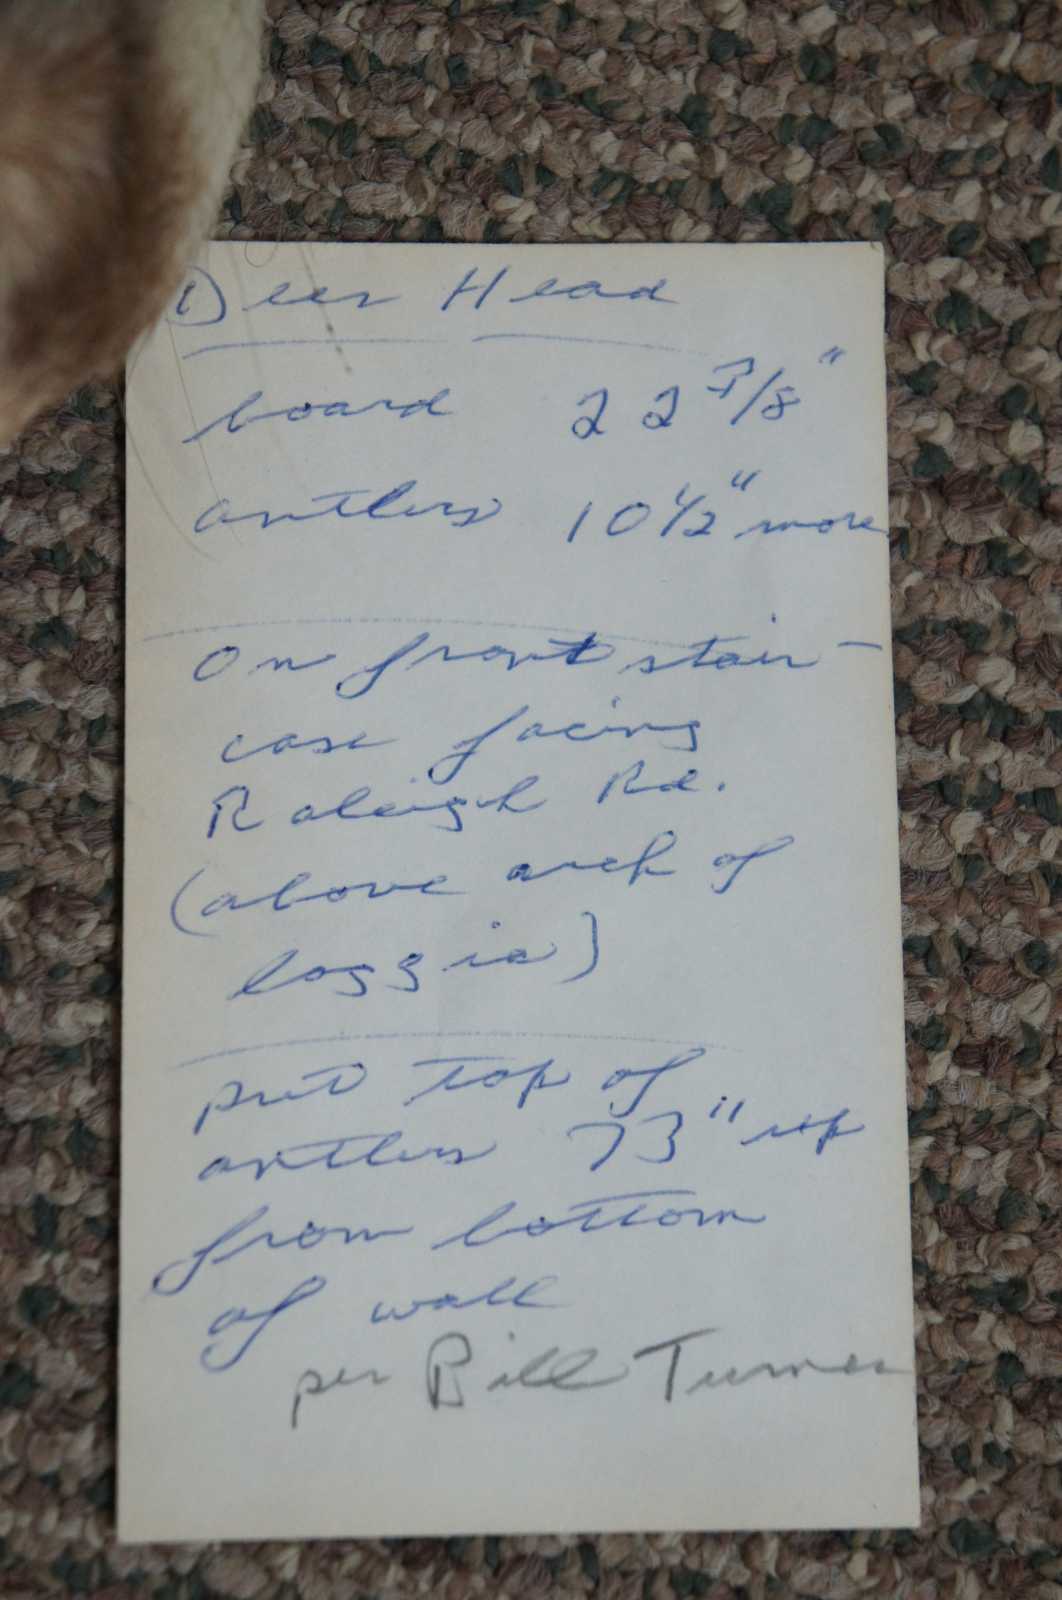 Deer Head
board 22 3/8"
antlers 10 1/2" more
On front stair-
case facing
Raleigh Rd.
(above arch of
loggia)
put top of
antlers 73" up
from bottom
of wall
per Bill Turner